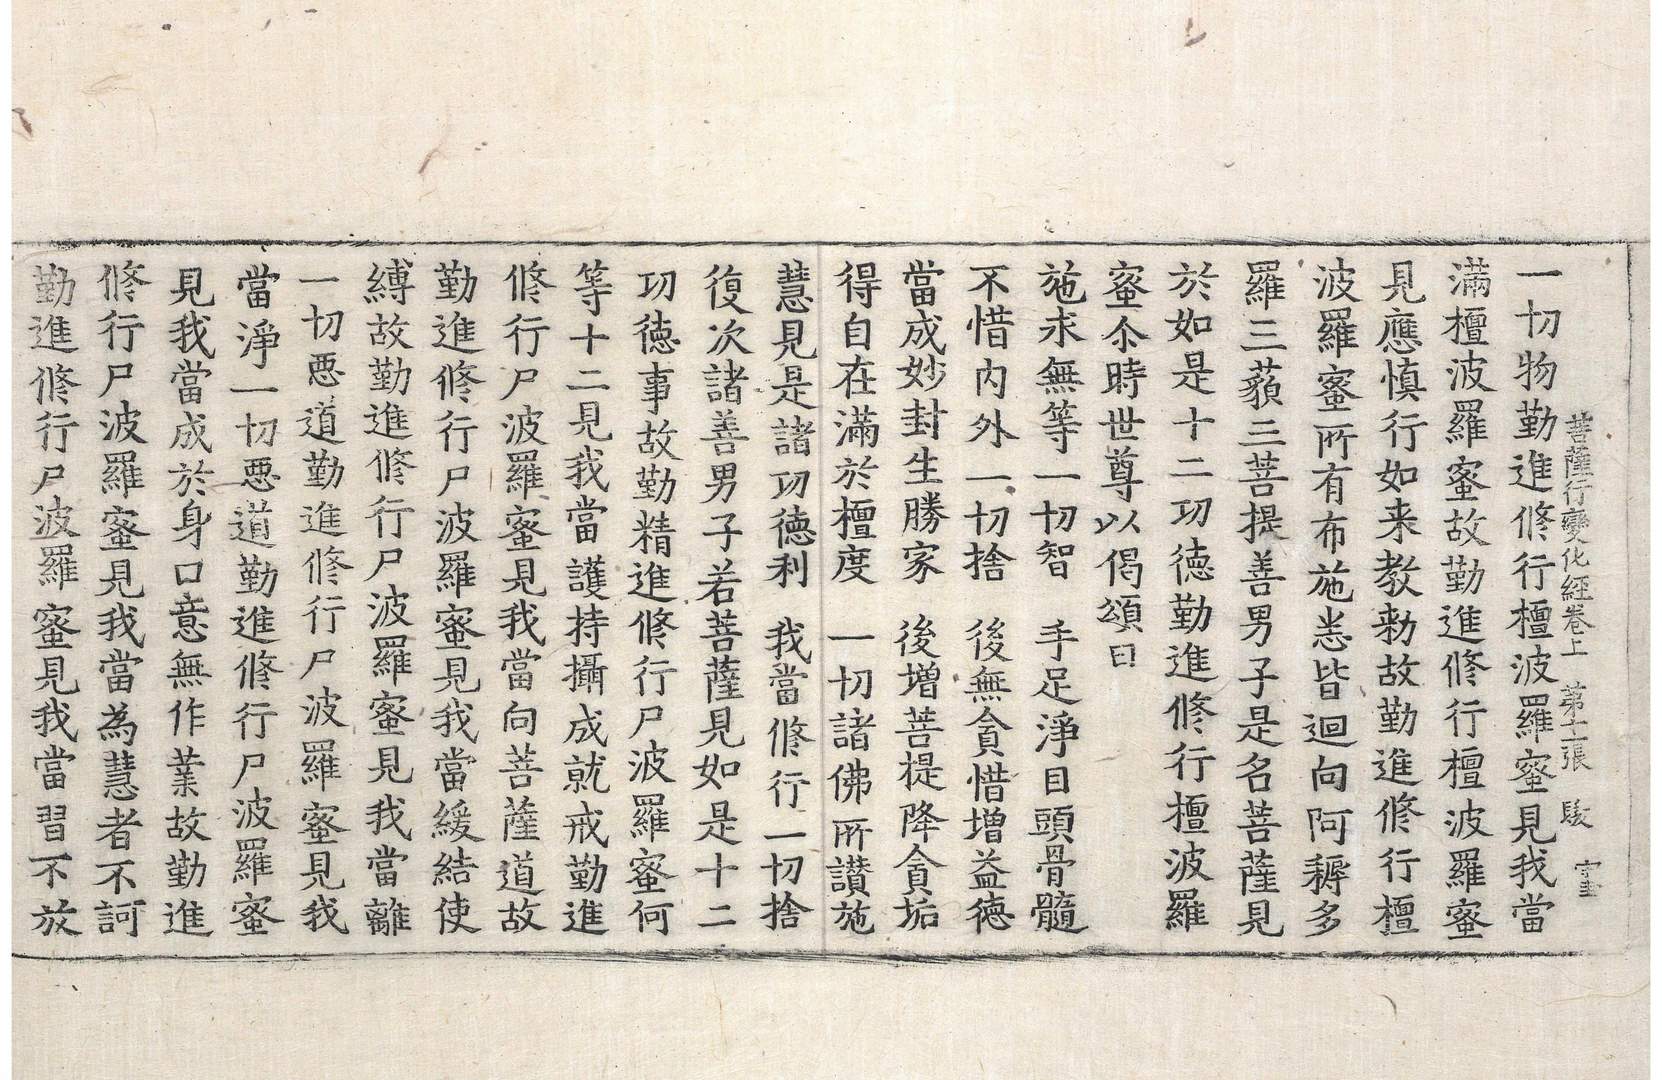 菩薩行變化經卷上　第十二張　駿
一切物勤進修行檀波羅蜜見我當
滿檀波羅蜜故勤進修行檀波羅蜜
見應慎行如来教勑故勤進修行檀
波羅蜜所有布施悉皆迴向阿耨多
羅三藐三菩提善男子是名菩薩見
於如是十二㓛德勤進修行檀波羅
蜜尒時世尊以偈頌曰
施求無等一切智　手足淨目頭骨髓
不惜内外一切捨　後無貪惜增益德
當成妙封生勝家　後增菩提降貪垢
得自在滿於檀度　一切諸佛所讃施
慧見是諸㓛德利　我當修行一切捨
復次諸善男子若菩薩見如是十二
㓛德事故勤精進修行尸波羅蜜何
等十二見我當護持攝成就戒勤進
修行尸波羅蜜見我當向菩薩道故
勤進修行尸波羅蜜見我當緩結使
縛故勤進修行尸波羅蜜見我當離
一切惡道勤進修行尸波羅蜜見我
當淨一切惡道勤進修行尸波羅蜜
見我當成於身口意無作業故勤進
修行尸波羅蜜見我當為慧者不訶
勤進修行尸波羅蜜見我當習不放